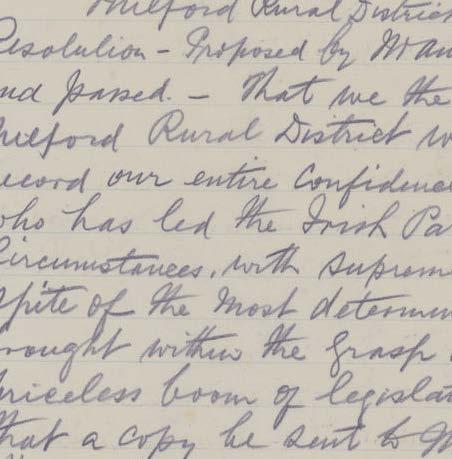 Milford Rural District
Resolution - Proposed by
and passed. - That we the
Milford Rural District
record our entire Confidence
who has led the Irish Pa
Circumstances, with suprem
spite of the most determin
rought within the grasp
priceless boom of legislat
that a copy be sent to